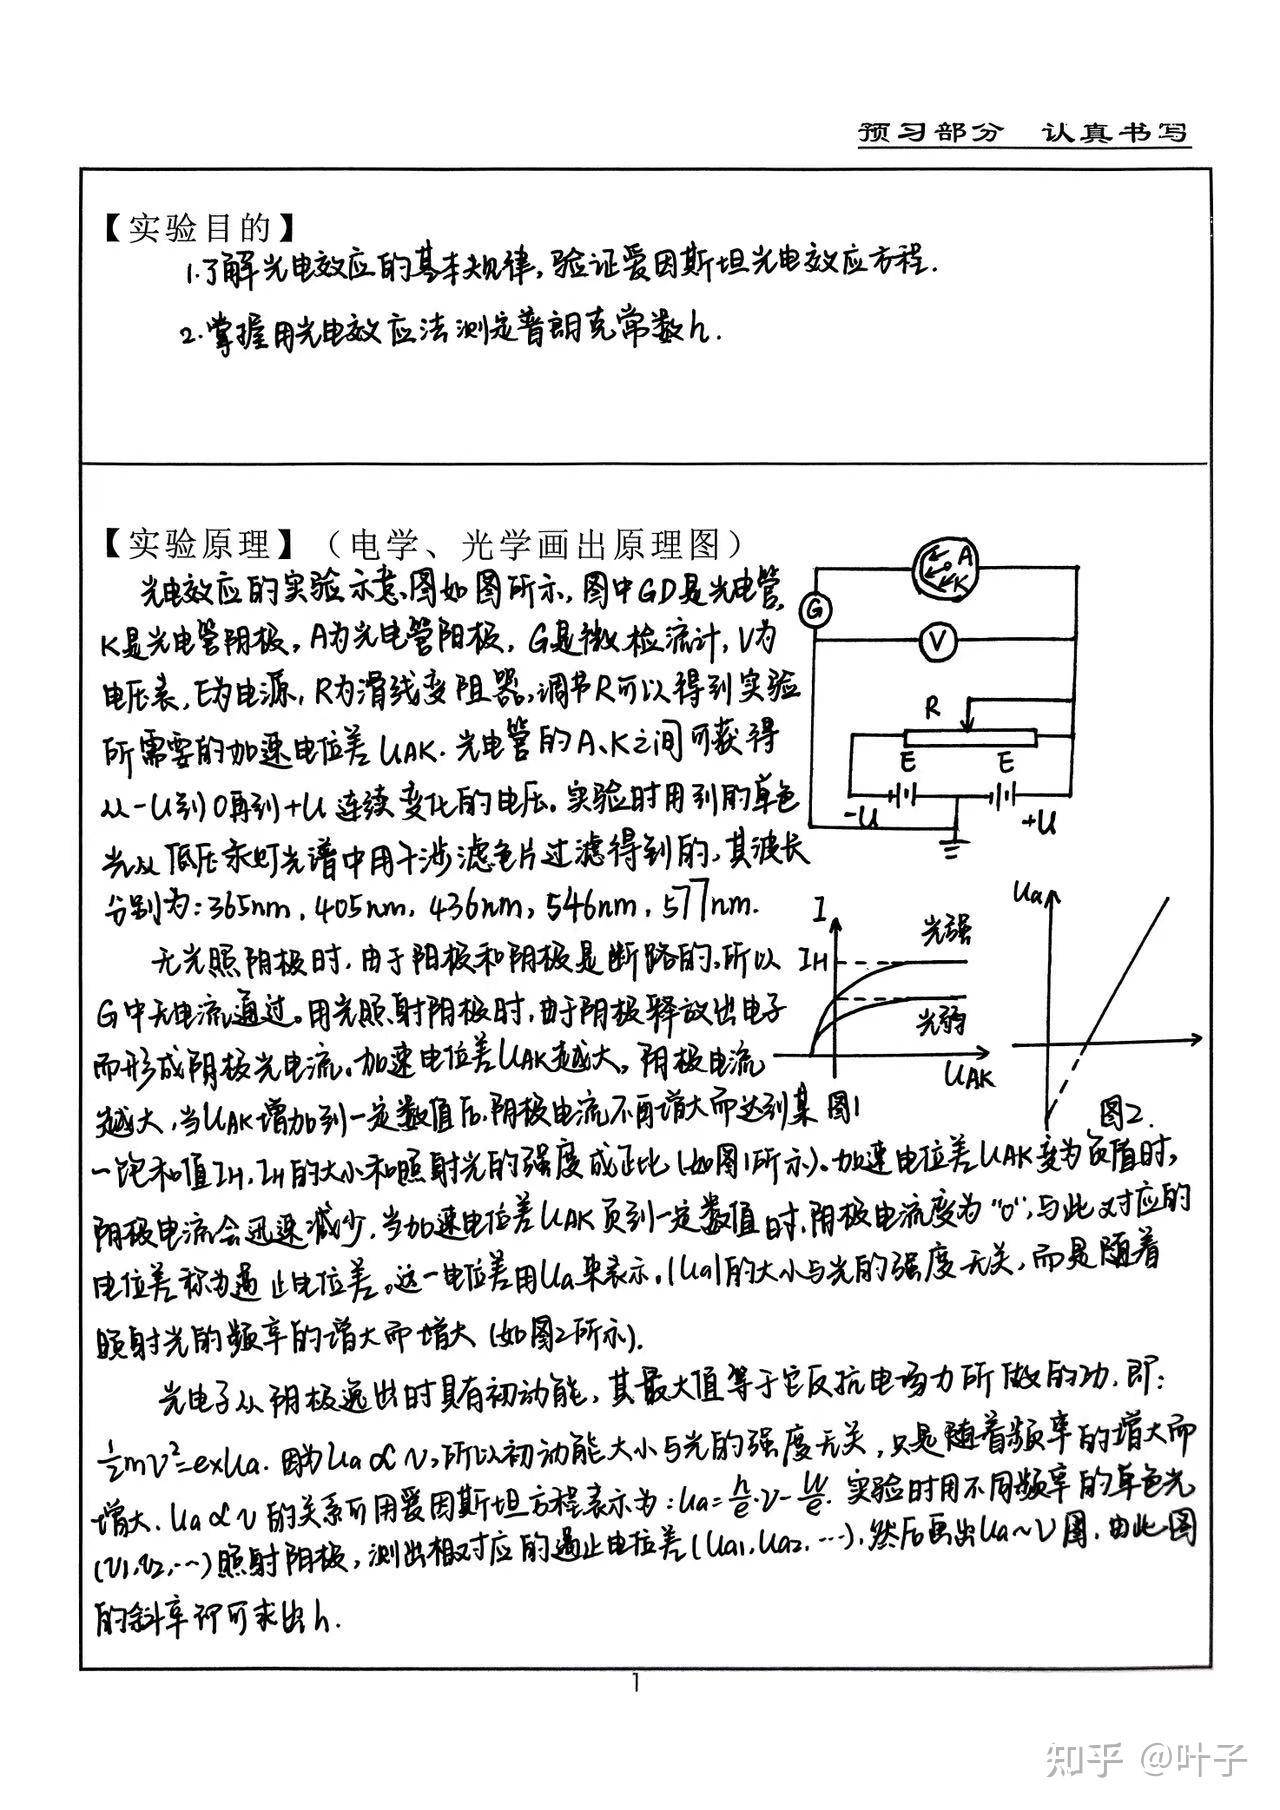 预习部分 认真书写
【实验目的】
1.了解光电效应的基本规律,验证爱因斯坦光电效应方程.
2.掌握用光电效应法测定普朗克常数h.
【实验原理】(电学、光学画出原理图)
光电效应的实验示意图如图所示,图中GD是光电管,
K是光电管阴极,A为光电管阳极,G是微检流计,V为
电压表,E为电源,R为滑线变阻器,调节R可以得到实验
所需要的加速电位差UAK.光电管的A、K之间可获得
从-U到0再到+U连续变化的电压。实验时用到的单色
光从低压汞灯光谱中用干涉滤色片过滤得到的,其波长
分别为:365nm,405nm,436nm,546nm,577nm.
无光照阴极时,由于阳极和阴极是断路的,所以
G中无电流通过。用光照射阴极时,由于阴极释放出电子
而形成阴极光电流。加速电位差UAK越大,阴极电流
越大,当UAK增加到一定数值后,阴极电流不再增大而达到某
一饱和值IH,IH的大小和照射光的强度成正比(如图1所示)。加速电位差UAK变为负值时,
阴极电流会迅速减少,当加速电位差UAK负到一定数值时,阴极电流变为"0",与此对应的
电位差称为遏止电位差。这一电位差用Ua来表示.|Ua|的大小与光的强度无关,而是随着
照射光的频率的增大而增大(如图2所示).
光电子从阴极逸出时具有初动能,其最大值等于它反抗电场力所做的功,即:
½mv²=e×Ua.因为Ua∝ν,所以初动能大小与光的强度无关,只是随着频率的增大而
增大.Ua∝ν的关系可用爱因斯坦方程表示为:Ua=h/e·ν-W/e.实验时用不同频率的单色光
(ν1,ν2,…)照射阴极,测出相对应的遏止电位差(Ua1,Ua2,…),然后画出Ua~ν图,由此图
的斜率即可求出h.
A
K
G
V
R
E
E
-U
+U
I
IH
光强
光弱
UAK
图1
Ua
图2.
1
知乎 @叶子